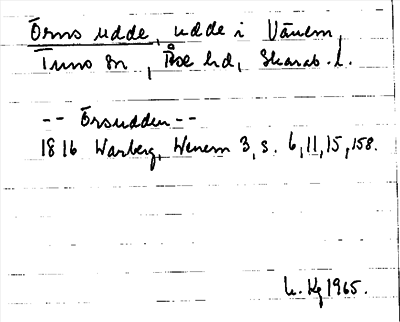 Örns udde, udde i Vänern,
Tuns sn, Åse hd, Skarab. l.
-- Örsudden --
1816 Warberg, Wenern 3, s. 6, 11, 15, 158.
1965.